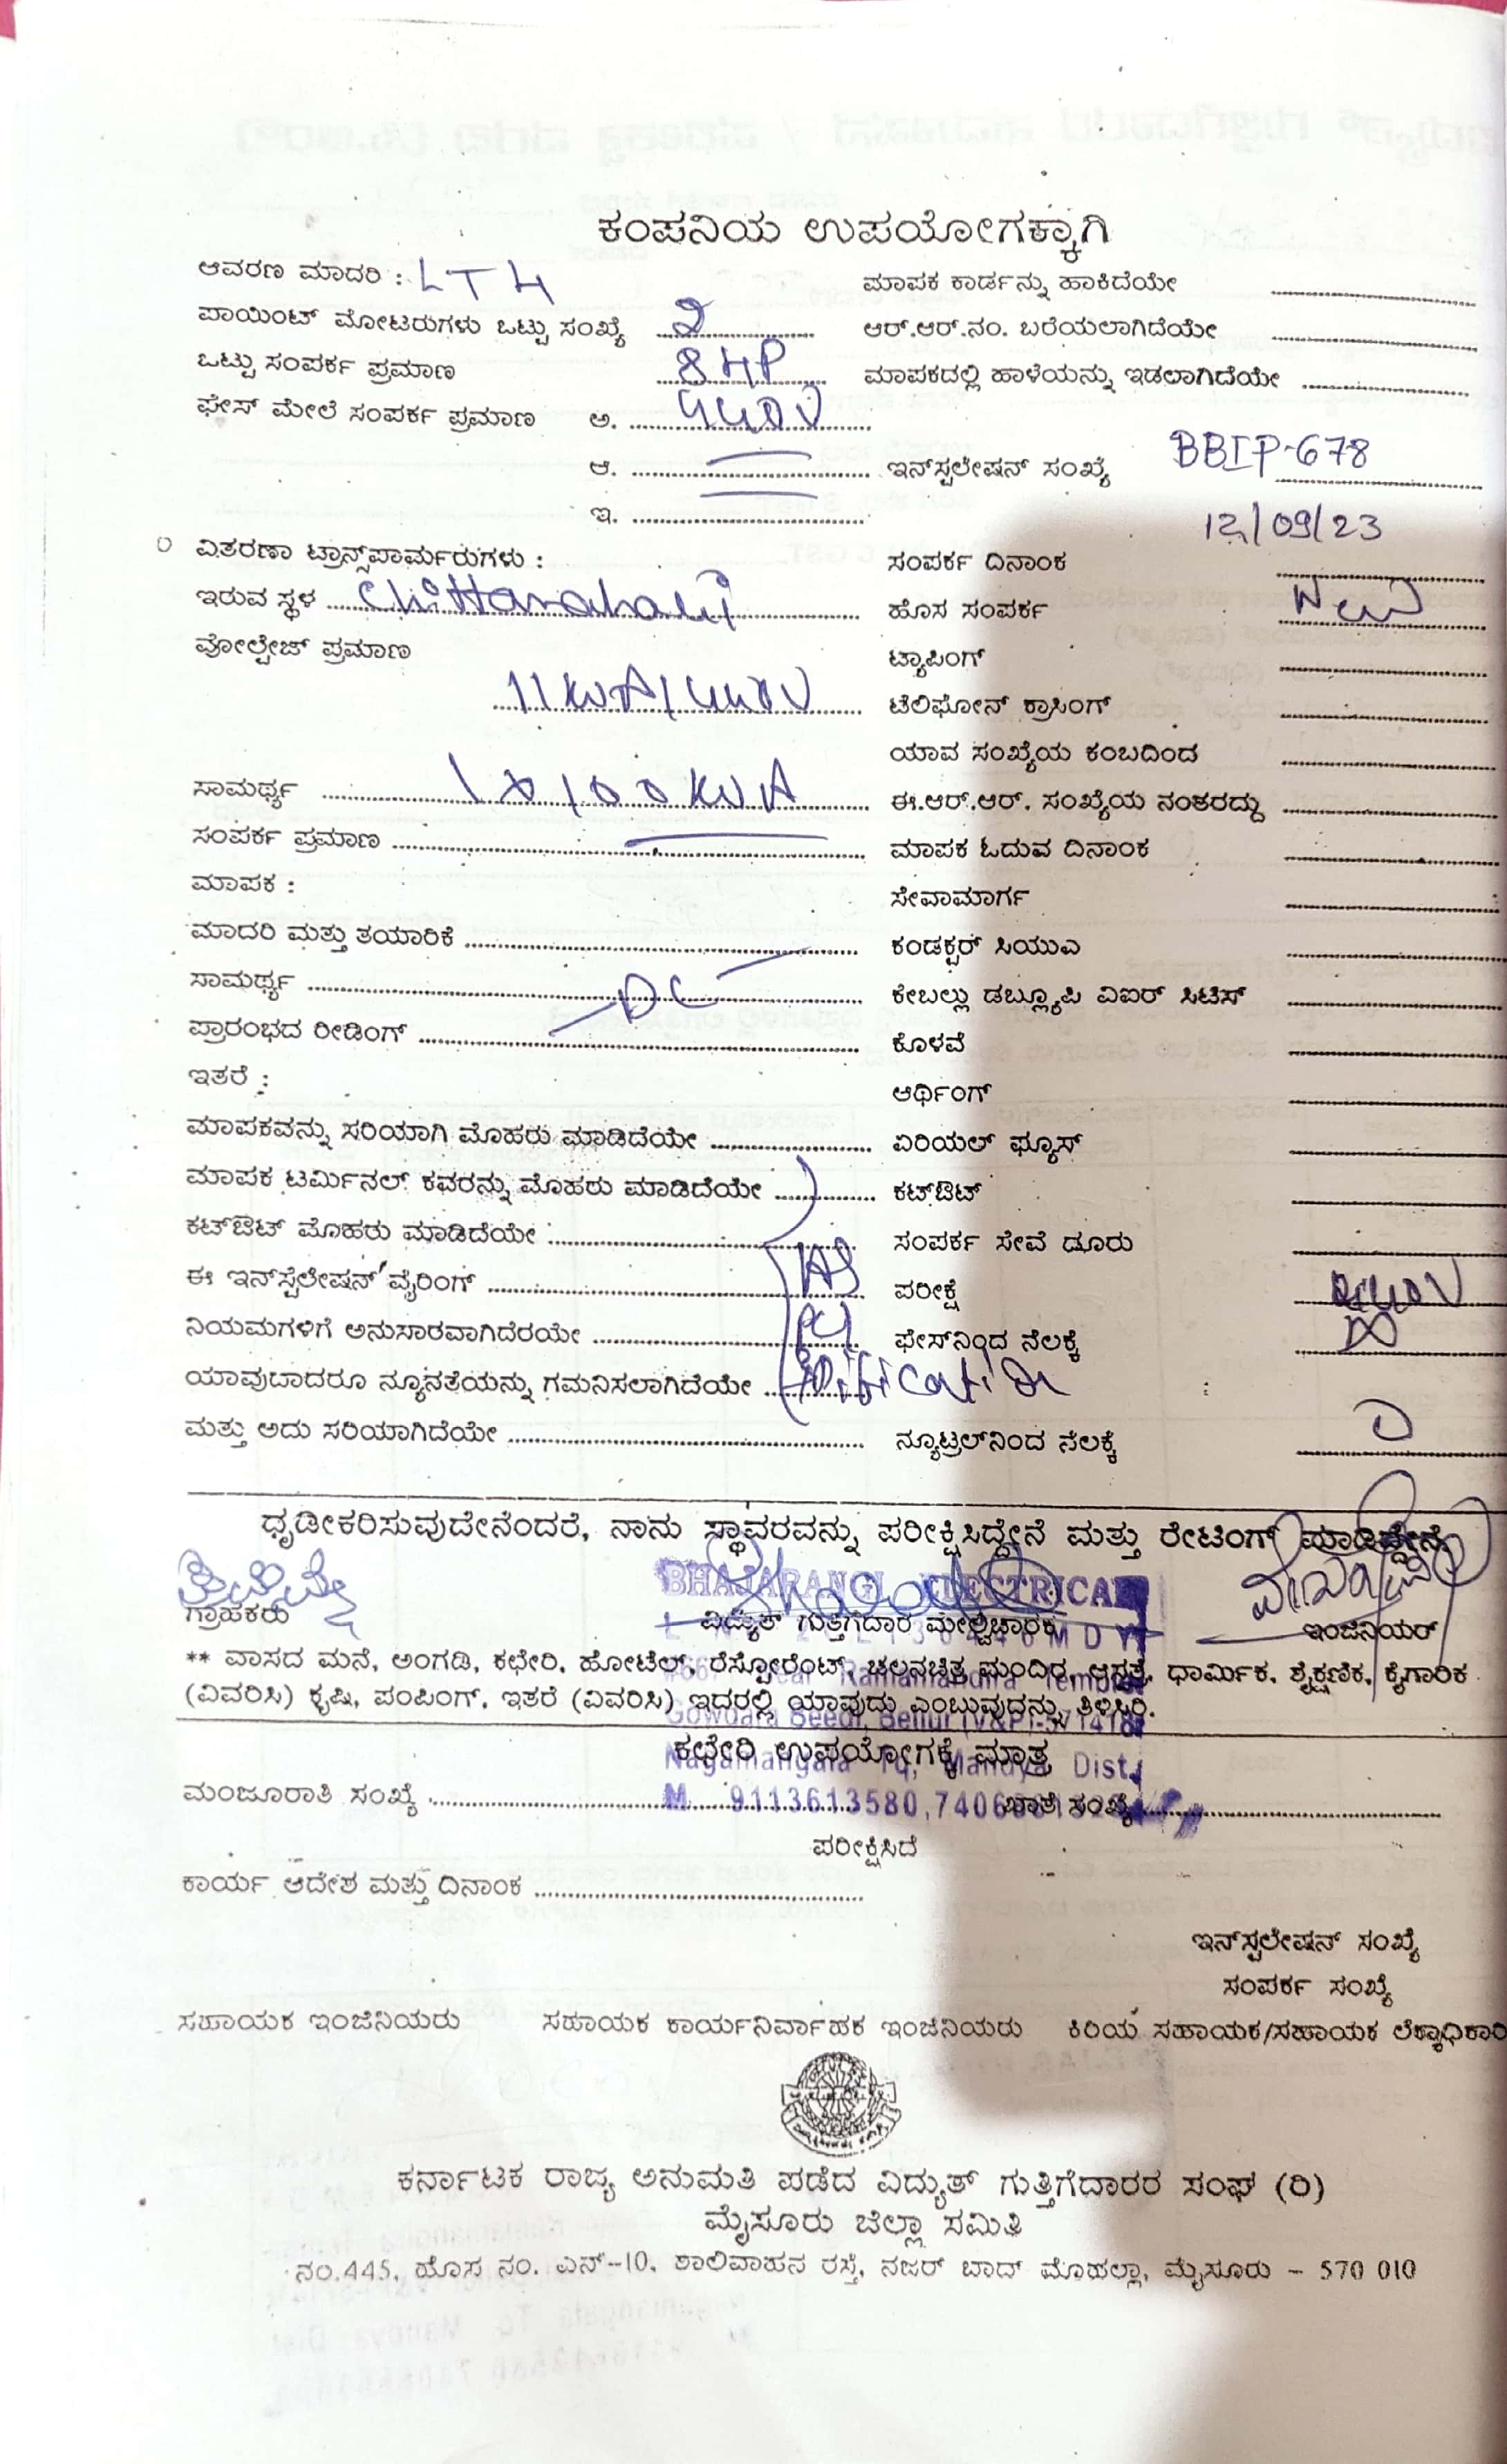 ಕಂಪನಿಯ ಉಪಯೋಗಕ್ಕಾಗಿ
ಆವರಣ ಮಾದರಿ : LT4
ಮಾಪಕ ಕಾರ್ಡನ್ನು ಹಾಕಿದೆಯೇ
ಪಾಯಿಂಟ್ ಮೋಟರುಗಳು ಒಟ್ಟು ಸಂಖ್ಯೆ 2
ಆರ್.ಆರ್.ನಂ. ಬರೆಯಲಾಗಿದೆಯೇ
ಒಟ್ಟು ಸಂಪರ್ಕ ಪ್ರಮಾಣ 8HP
ಮಾಪಕದಲ್ಲಿ ಹಾಳೆಯನ್ನು ಇಡಲಾಗಿದೆಯೇ
ಫೇಸ್ ಮೇಲೆ ಸಂಪರ್ಕ ಪ್ರಮಾಣ ಅ. 440V
ಆ.
ಇನ್‌ಸ್ಟಲೇಷನ್ ಸಂಖ್ಯೆ BBIP-678
ಇ.
12/09/23
ವಿತರಣಾ ಟ್ರಾನ್ಸ್‌ಪಾರ್ಮರುಗಳು :
ಸಂಪರ್ಕ ದಿನಾಂಕ
ಇರುವ ಸ್ಥಳ Chittanahalli
ಹೊಸ ಸಂಪರ್ಕ New
ವೋಲ್ಟೇಜ್ ಪ್ರಮಾಣ
ಟ್ಯಾಪಿಂಗ್
11KVA/440V
ಟೆಲಿಫೋನ್ ಕ್ರಾಸಿಂಗ್
ಯಾವ ಸಂಖ್ಯೆಯ ಕಂಬದಿಂದ
ಸಾಮರ್ಥ್ಯ 1x100KVA
ಈ.ಆರ್.ಆರ್. ಸಂಖ್ಯೆಯ ನಂತರದ್ದು
ಸಂಪರ್ಕ ಪ್ರಮಾಣ
ಮಾಪಕ ಓದುವ ದಿನಾಂಕ
ಮಾಪಕ :
ಸೇವಾಮಾರ್ಗ
ಮಾದರಿ ಮತ್ತು ತಯಾರಿಕೆ
ಕಂಡಕ್ಟರ್ ಸಿಯುಎ
ಸಾಮರ್ಥ್ಯ DC
ಕೇಬಲ್ಲು ಡಬ್ಲ್ಯೂಪಿ ವಿಐರ್ ಸಿಟಿಸ್
ಪ್ರಾರಂಭದ ರೀಡಿಂಗ್
ಕೊಳವೆ
ಇತರೆ :
ಆರ್ಥಿಂಗ್
ಮಾಪಕವನ್ನು ಸರಿಯಾಗಿ ಮೊಹರು ಮಾಡಿದೆಯೇ
ಏರಿಯಲ್ ಫ್ಯೂಸ್
ಮಾಪಕ ಟರ್ಮಿನಲ್ ಕವರನ್ನು ಮೊಹರು ಮಾಡಿದೆಯೇ
ಕಟ್‌ಔಟ್
ಕಟ್‌ಔಟ್ ಮೊಹರು ಮಾಡಿದೆಯೇ
ಸಂಪರ್ಕ ಸೇವೆ ಡೂರು
ಈ ಇನ್‌ಸ್ಟೆಲೇಷನ್ ವೈರಿಂಗ್ As
ಪರೀಕ್ಷೆ 440V
ನಿಯಮಗಳಿಗೆ ಅನುಸಾರವಾಗಿದೆರಯೇ
ಫೇಸ್‌ನಿಂದ ನೆಲಕ್ಕೆ ∞
ಯಾವುದಾದರೂ ನ್ಯೂನತೆಯನ್ನು ಗಮನಿಸಲಾಗಿದೆಯೇ
ಮತ್ತು ಅದು ಸರಿಯಾಗಿದೆಯೇ
ನ್ಯೂಟ್ರಲ್‌ನಿಂದ ನೆಲಕ್ಕೆ
ಧೃಡೀಕರಿಸುವುದೇನೆಂದರೆ, ನಾನು ಸ್ಥಾವರವನ್ನು ಪರೀಕ್ಷಿಸಿದ್ದೇನೆ ಮತ್ತು ರೇಟಿಂಗ್ ಮಾಡಿದ್ದೇನೆ.
BHAJARANGI ELECTRICAL
ಗ್ರಾಹಕರು
ವಿದ್ಯುತ್ ಗುತ್ತಿಗೆದಾರ ಮೇಲ್ವಿಚಾರಕ
ಇಂಜಿನಿಯರ್
** ವಾಸದ ಮನೆ, ಅಂಗಡಿ, ಕಛೇರಿ, ಹೋಟೆಲ್, ರೆಸ್ಟೋರೆಂಟ್, ಚಲನಚಿತ್ರ ಮಂದಿರ, ಆಸ್ಪತ್ರೆ, ಧಾರ್ಮಿಕ, ಶೈಕ್ಷಣಿಕ, ಕೈಗಾರಿಕ
Near Ramamandira Temple
(ವಿವರಿಸಿ) ಕೃಷಿ, ಪಂಪಿಂಗ್, ಇತರೆ (ವಿವರಿಸಿ) ಇದರಲ್ಲಿ ಯಾವುದು ಎಂಬುವುದನ್ನು ತಿಳಿಸಿರಿ.
Gowdara Beedi, Bellur (V&P)-571418
ಕಛೇರಿ ಉಪಯೋಗಕ್ಕೆ ಮಾತ್ರ
Nagamangala Tq, Mandya Dist.
ಮಂಜೂರಾತಿ ಸಂಖ್ಯೆ
M 9113613580,
ಖಾತೆ ಸಂಖ್ಯೆ
ಪರೀಕ್ಷಿಸಿದೆ
ಕಾರ್ಯ ಆದೇಶ ಮತ್ತು ದಿನಾಂಕ
ಇನ್‌ಸ್ಟಲೇಷನ್ ಸಂಖ್ಯೆ
ಸಂಪರ್ಕ ಸಂಖ್ಯೆ
ಸಹಾಯಕ ಇಂಜಿನಿಯರು
ಸಹಾಯಕ ಕಾರ್ಯನಿರ್ವಾಹಕ ಇಂಜಿನಿಯರು
ಕಿರಿಯ ಸಹಾಯಕ/ಸಹಾಯಕ ಲೆಕ್ಕಾಧಿಕಾರಿ
ಕರ್ನಾಟಕ ರಾಜ್ಯ ಅನುಮತಿ ಪಡೆದ ವಿದ್ಯುತ್ ಗುತ್ತಿಗೆದಾರರ ಸಂಘ (ರಿ)
ಮೈಸೂರು ಜಿಲ್ಲಾ ಸಮಿತಿ
ನಂ.445, ಹೊಸ ನಂ. ಎನ್-10, ಶಾಲಿವಾಹನ ರಸ್ತೆ, ನಜರ್ ಬಾದ್ ಮೊಹಲ್ಲಾ, ಮೈಸೂರು - 570 010